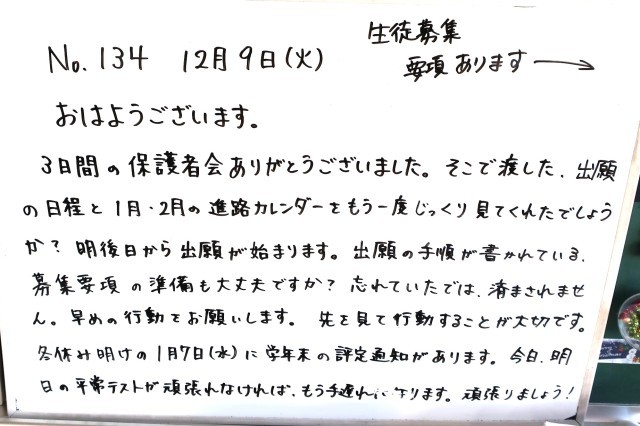 No. 134 12月9日(火)
生徒募集
要項あります→
おはようございます。
3日間の保護者会ありがとうございました。そこで渡した、出願
の日程と1月・2月の進路カレンダーをもう一度じっくり見てくれたでしょう
か？明後日から出願が始まります。出願の手順が書かれている、
募集要項の準備も大丈夫ですか？忘れていたでは、済まされませ
ん。早めの行動をお願いします。先を見て行動することが大切です。
冬休み明けの1月7日(水)に学年末の評定通知があります。今日、明
日の平常テストが頑張れなければ、もう手遅れになります。頑張りましょう！